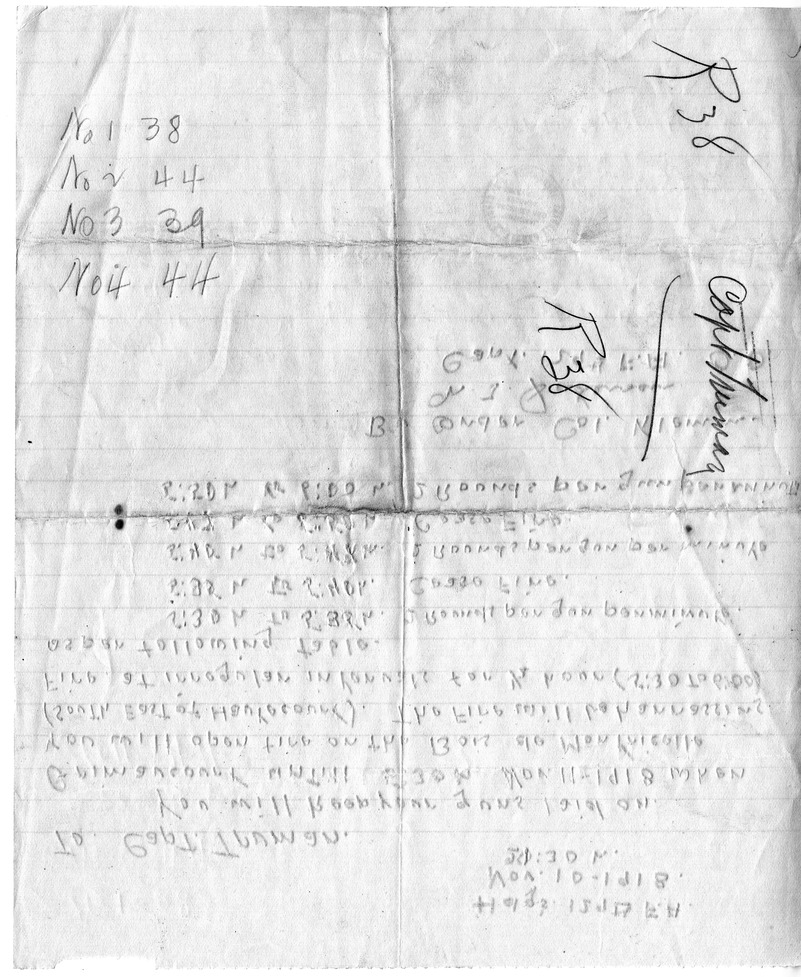 No 1 38
No 2 44
No 3 39
No 4 44
R 38
R 38
Capt Truman
Hdqs. 129th F.A.
Nov. 10-1918.
:30 h.
To Capt. Truman.
You will keep your guns laid on
Grimaucourt untill 5:30 h Nov 11-1918 when
you will open fire on the Bois de
(South East of Hautecourt). The Fire will be harrassing
Fire at irregular intervals for ½ hour (5:30 To 6:00)
as per following Table.
5:30 h To 5:35 h. 2 Rounds per gun per minute.
5:35 h To 5:40 h. Cease Fire.
5:40 h To 5:45 h. 2 Rounds per gun per minute
5:45 h to 5:50 h. Cease Fire.
5:50 h To 6:00 h. 2 Rounds per gun per minute
By Order Col. Klemm.
Capt. F.A.